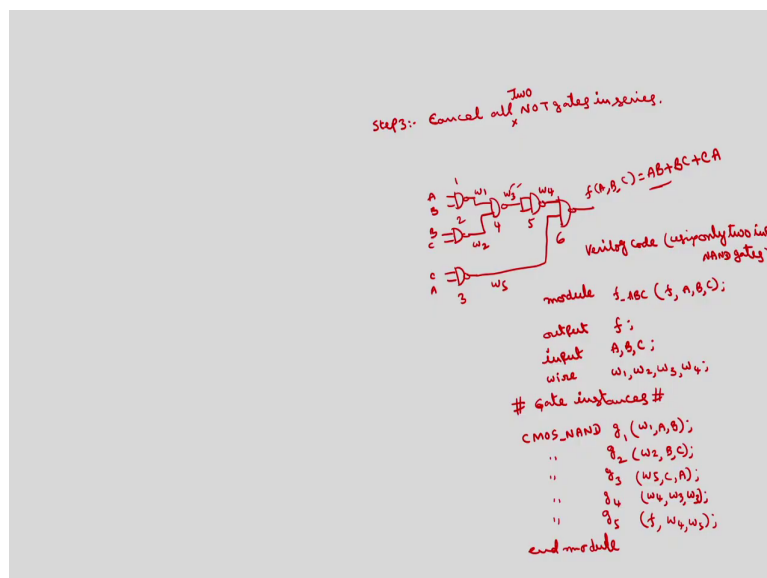 Two
Step3:- Cancel all NOT gates in series.
x
1
A
B
w1
w3
w4
f(A,B,C) = AB+BC+CA
2
B
C
w2
4
5
6
C
A
3
w5
Verilog code (using only two in
NAND gates)
module f_ABC (f, A,B,C);
output f;
input A,B,C;
wire w1,w2,w3,w4;
# Gate instances #
CMOS_NAND g1 (w1,A,B);
" g2 (w2,B,C);
" g3 (w5,C,A);
" g4 (w4,w3,w3);
" g5 (f, w4,w5);
end module